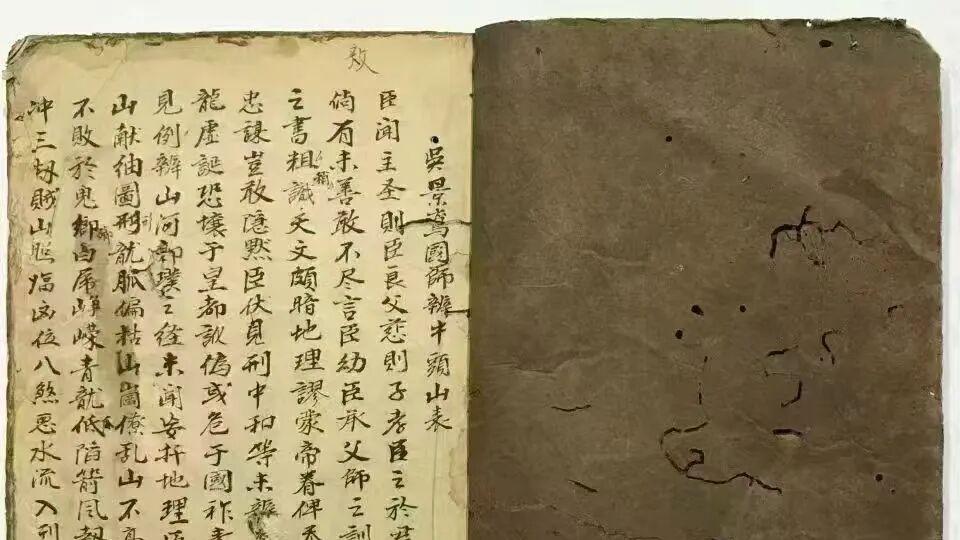 敗
吳景鸞國師辨牛頭山表
臣聞主圣則臣良父慈則子孝臣之於君
倘有未善敢不尽言臣幼臣承父師之訓
之書粗識天文頗暗地理謬蒙帝眷俾
忠謀豈敢隐默臣伏見刑中和等未辨
龍虛誕恐壞于皇都訛偽或危于國祚
見例辨山河郭璞之経未聞安扦地理
山献紬圖形龍脈偏枯山崗僚乱山不高
不敗於鬼鄉白虎崢嶸青龍低陷箭風
冲三刼賊山凶位八煞惡水流入